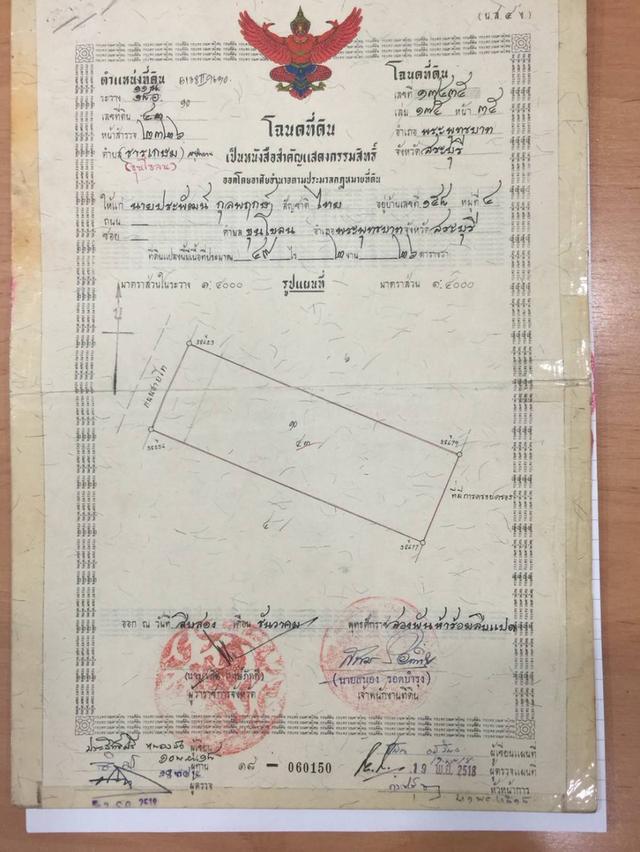 (น.ส. ๔ ข.)
ตำแหน่งที่ดิน
ระวาง
เลขที่ดิน ๔๓
หน้าสำรวจ ๒๓๒๖
ตำบล (ธารเกษม)
(ขุนโขลน)
โฉนดที่ดิน
เลขที่ ๑๓๔๓๕
เล่ม ๑๓๕ หน้า ๓๕
อำเภอ พระพุทธบาท
จังหวัด สระบุรี
โฉนดที่ดิน
เป็นหนังสือสำคัญแสดงกรรมสิทธิ์
ออกโดยอาศัยอำนาจตามประมวลกฎหมายที่ดิน
ให้แก่ นายประพัฒน์ กุลพฤกษ์ สัญชาติ ไทย อยู่บ้านเลขที่ หมู่ที่ ๔
ถนน
ซอย ตำบล ขุนโขลน อำเภอ พระพุทธบาท จังหวัด สระบุรี
ที่ดินแปลงนี้มีเนื้อที่ประมาณ ๔๙ ไร่ ๒ งาน ๒๖ ตารางวา
มาตราส่วนในระวาง ๑:๔๐๐๐ รูปแผนที่ มาตราส่วน ๑:๔๐๐๐
น
๖
๑๐
๔๓
ที่มีการครอบครอง
๔
ออก ณ วันที่ สิบสอง เดือน ธันวาคม พุทธศักราช สองพันห้าร้อยสิบแปด
ผู้ว่าราชการจังหวัด
(นายสนอง รอดบำรุง)
เจ้าพนักงานที่ดิน
ผู้เขียน
ผู้ทาน
ผู้ตรวจ
๑๘ — 060150
19 พ.ย. 2518
ผู้เขียนแผนที่
ผู้ตรวจแผนที่
หัวหน้าการ